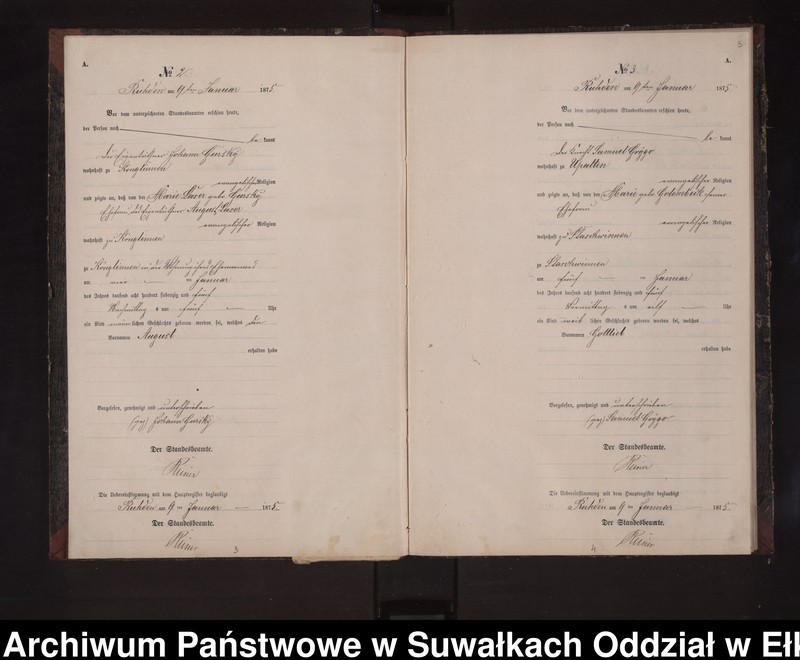 A.
№ 2.
Ruhden am 9ten Januar 1875
Vor dem unterzeichneten Standesbeamten erschien heute,
der Person nach
be kannt
der Eigenkäthner Johann Gursky
wohnhaft zu Königlinnen
evangelischer Religion
und zeigte an, daß von der Marie Laser geb. Gursky
Ehefrau des August Laser
evangelischer Religion
wohnhaft zu Königlinnen
zu Königlinnen in der Wohnung ihres Ehemannes
am ten Januar
des Jahres tausend acht hundert siebenzig und fünf
Nachmittags um fünf Uhr
ein Kind männlichen Geschlechts geboren worden sei, welches den
Vornamen August
erhalten habe
Vorgelesen, genehmigt und unterschrieben
(gez) Johann Gursky
Der Standesbeamte.
Reiner
Die Uebereinstimmung mit dem Hauptregister beglaubigt
Ruhden am 9ten Januar 1875.
Der Standesbeamte.
Reiner
3
5
A.
№ 3.
Ruhden am 9ten Januar 1875
Vor dem unterzeichneten Standesbeamten erschien heute,
der Person nach
be kannt
der Samuel Goggo
wohnhaft zu Upalten
evangelischer Religion
und zeigte an, daß von der Marie geb. Golembeck seiner
Ehefrau
evangelischer Religion
wohnhaft zu Staschwinnen
zu Staschwinnen
am fünf ten Januar
des Jahres tausend acht hundert siebenzig und fünf
Vormittag s um elf Uhr
ein Kind weib lichen Geschlechts geboren worden sei, welches
Vornamen Gottlieb
erhalten habe
Vorgelesen, genehmigt und unterschrieben
(gez) Samuel Goggo
Der Standesbeamte.
Reiner
Die Uebereinstimmung mit dem Hauptregister beglaubigt
Ruhden am 9ten Januar 1875.
Der Standesbeamte.
Reiner
4
Archiwum Państwowe w Suwałkach Oddział w Ełk